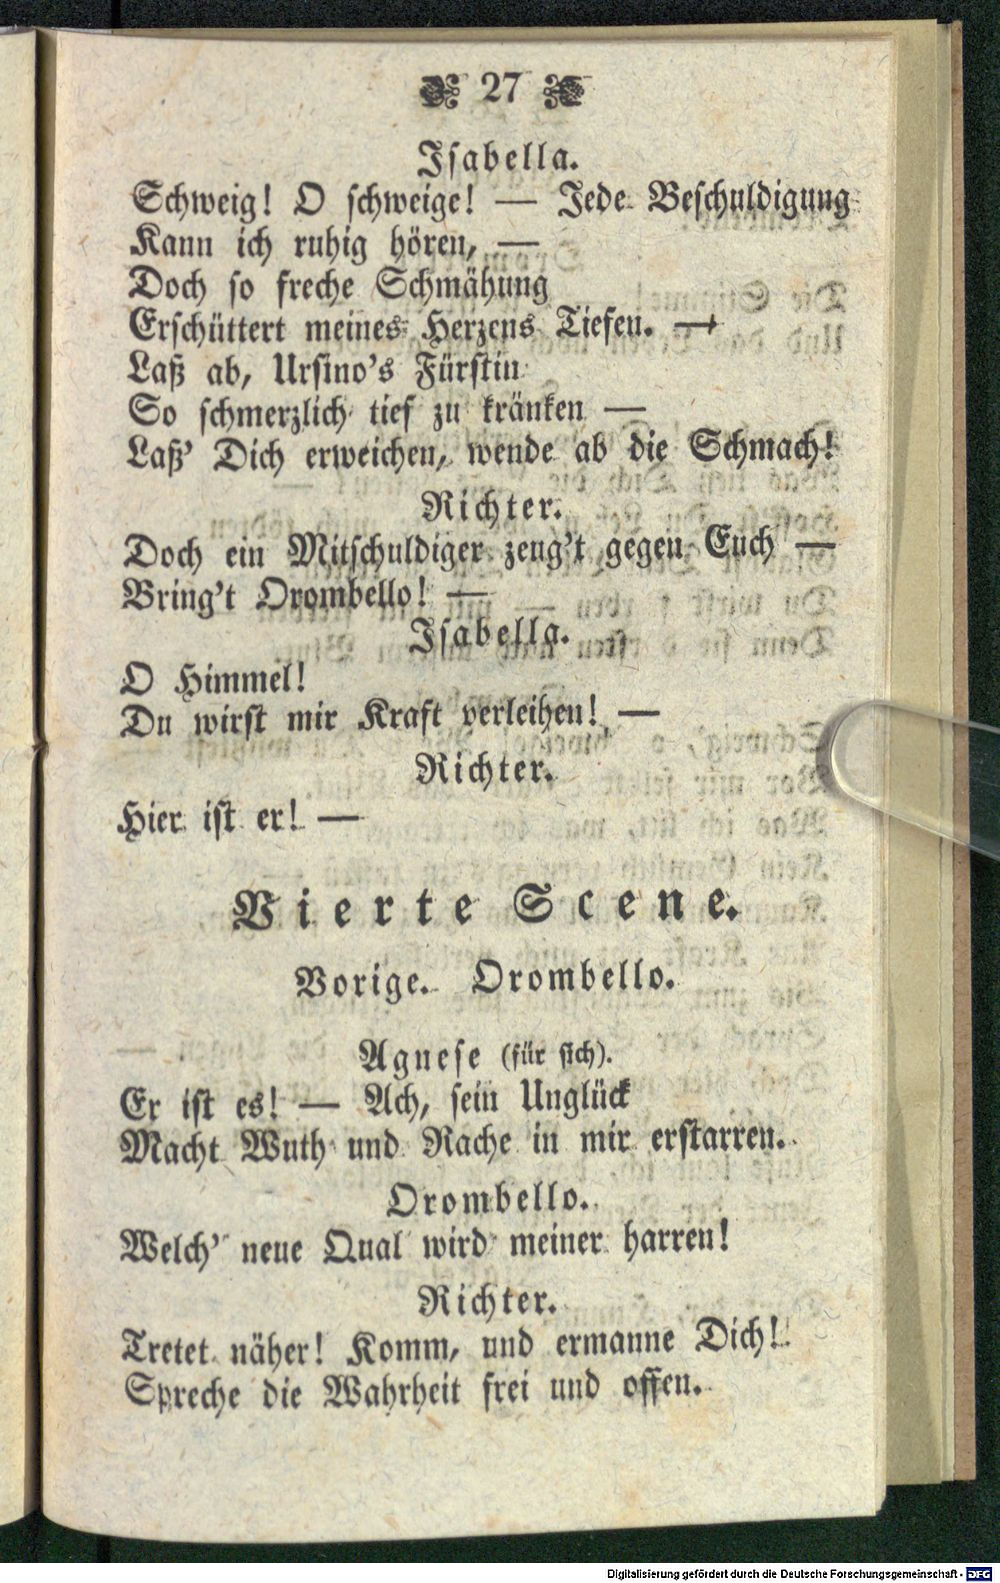 27
Isabella.
Schweig! O schweige! — Jede Beschuldigung
Kann ich ruhig hören, —
Doch so freche Schmähung
Erschüttert meines Herzens Tiefen. —
Laß ab, Ursino's Fürstin
So schmerzlich tief zu kränken —
Laß' Dich erweichen, wende ab die Schmach!
Richter.
Doch ein Mitschuldiger zeug't gegen Euch —
Bring't Orombello! —
Isabella.
O Himmel!
Du wirst mir Kraft verleihen! —
Richter.
Hier ist er! —
Vierte Scene.
Vorige. Orombello.
Agnese (für sich).
Er ist es! — Ach, sein Unglück
Macht Wuth und Rache in mir erstarren.
Orombello.
Welch' neue Qual wird meiner harren!
Richter.
Tretet näher! Komm, und ermanne Dich!
Spreche die Wahrheit frei und offen.
Digitalisierung gefördert durch die Deutsche Forschungsgemeinschaft - DFG